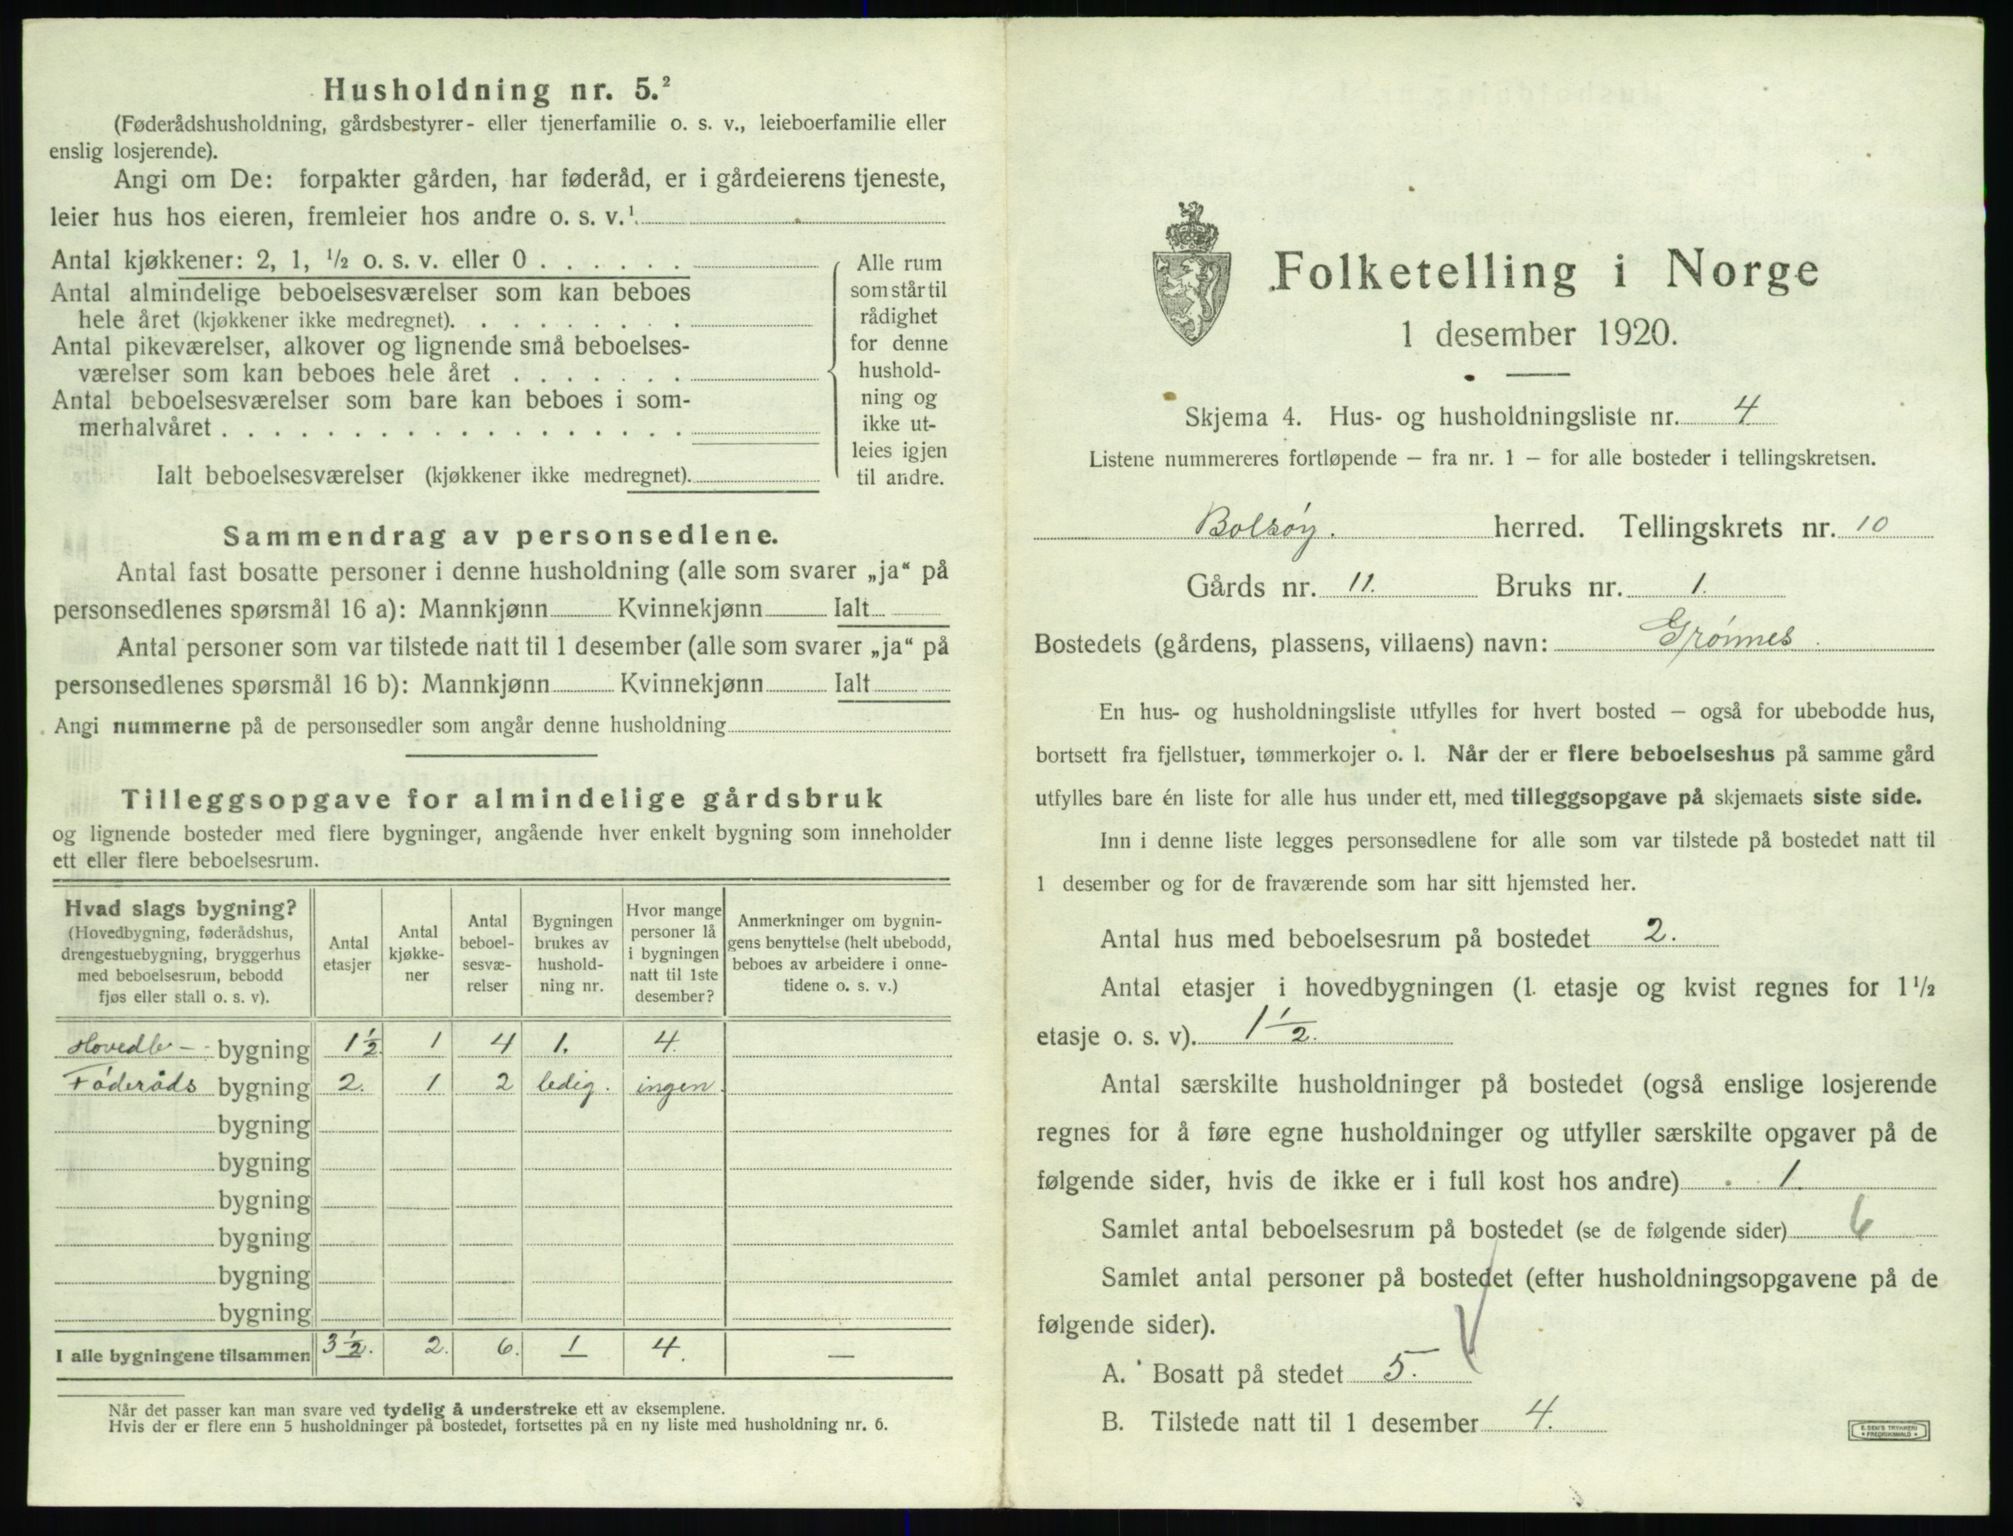 Husholdning nr. 5.²
(Føderådshusholdning, gårdsbestyrer- eller tjenerfamilie o. s. v., leieboerfamilie eller
enslig losjerende).
Angi om De: forpakter gården, har føderåd, er i gårdeierens tjeneste,
leier hus hos eieren, fremleier hos andre o. s. v.¹
Antal kjøkkener: 2, 1, ½ o. s. v. eller 0 . . . . . .
Antal almindelige beboelsesværelser som kan beboes
hele året (kjøkkener ikke medregnet). . . . . . . . .
Antal pikeværelser, alkover og lignende små beboelses-
værelser som kan beboes hele året . . . . . . .
Antal beboelsesværelser som bare kan beboes i som-
merhalvåret . . . . . . . . . . . . . . . . . .
Ialt beboelsesværelser (kjøkkener ikke medregnet).
Alle rum
som står til
rådighet
for denne
hushold-
ning og
ikke ut-
leies igjen
til andre.
Sammendrag av personsedlene.
Antal fast bosatte personer i denne husholdning (alle som svarer „ja“ på
personsedlenes spørsmål 16 a): Mannkjønn Kvinnekjønn Ialt
Antal personer som var tilstede natt til 1 desember (alle som svarer „ja“ på
personsedlenes spørsmål 16 b): Mannkjønn Kvinnekjønn Ialt
Angi nummerne på de personsedler som angår denne husholdning
Tilleggsopgave for almindelige gårdsbruk
og lignende bosteder med flere bygninger, angående hver enkelt bygning som inneholder
ett eller flere beboelsesrum.
Hvad slags bygning?
(Hovedbygning, føderådshus,
drengestuebygning, bryggerhus
med beboelsesrum, bebodd
fjøs eller stall o. s. v).
Antal
etasjer
Antal
kjøkke-
ner
Antal
beboel-
sesvæ-
relser
Bygningen
brukes av
hushold-
ning nr.
Hvor mange
personer lå
i bygningen
natt til 1ste
desember?
Anmerkninger om bygnin-
gens benyttelse (helt ubebodd,
beboes av arbeidere i onne-
tidene o. s. v.)
Hovedb- bygning 1½ 1 4 1. 4.
Føderåds bygning 2. 1 2 ledig. ingen.
bygning
bygning
bygning
bygning
bygning
bygning
I alle bygningene tilsammen 3½. 2. 6. 1 4. —
Når det passer kan man svare ved tydelig å understreke ett av eksemplene.
Hvis der er flere enn 5 husholdninger på bostedet, fortsettes på en ny liste med husholdning nr. 6.
Folketelling i Norge
1 desember 1920.
Skjema 4. Hus- og husholdningsliste nr. 4
Listene nummereres fortløpende — fra nr. 1 — for alle bosteder i tellingskretsen.
Bolsøy. herred. Tellingskrets nr. 10
Gårds nr. 11. Bruks nr. 1.
Bostedets (gårdens, plassens, villaens) navn: Grønnes.
En hus- og husholdningsliste utfylles for hvert bosted — også for ubebodde hus,
bortsett fra fjellstuer, tømmerkojer o. l. Når der er flere beboelseshus på samme gård
utfylles bare én liste for alle hus under ett, med tilleggsopgave på skjemaets siste side.
Inn i denne liste legges personsedlene for alle som var tilstede på bostedet natt til
1 desember og for de fraværende som har sitt hjemsted her.
Antal hus med beboelsesrum på bostedet 2.
Antal etasjer i hovedbygningen (1. etasje og kvist regnes for 1½
etasje o. s. v). 1½.
Antal særskilte husholdninger på bostedet (også enslige losjerende
regnes for å føre egne husholdninger og utfyller særskilte opgaver på de
følgende sider, hvis de ikke er i full kost hos andre) 1.
Samlet antal beboelsesrum på bostedet (se de følgende sider) 6
Samlet antal personer på bostedet (efter husholdningsopgavene på de
følgende sider).
A. Bosatt på stedet 5.
B. Tilstede natt til 1 desember 4.